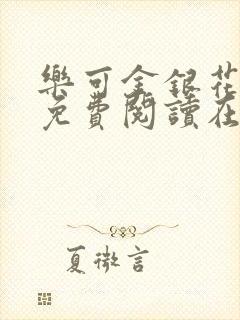 樂可金銀花
免費閱讀在
夏微言